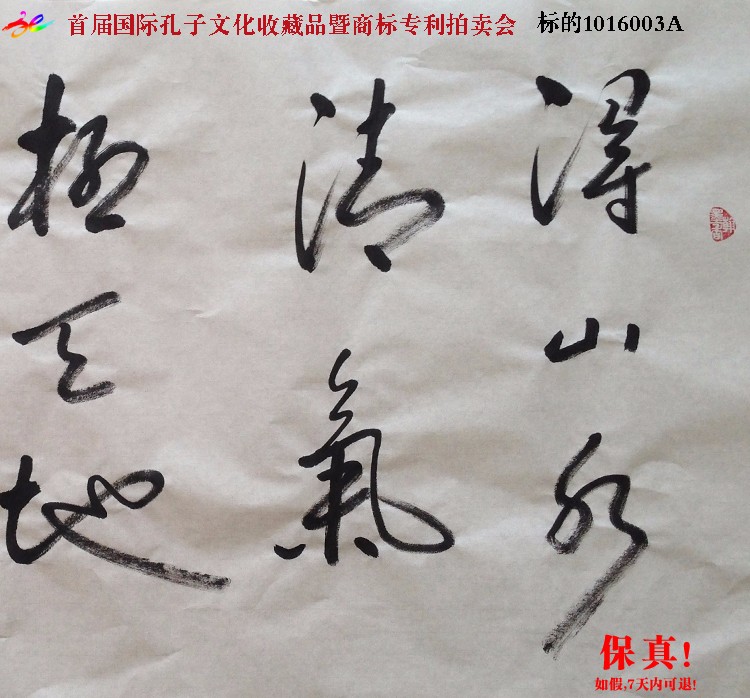 首届国际孔子文化收藏品暨商标专利拍卖会 标的1016003A
得山水
清氣
極天地
保真!
如假,7天内可退!